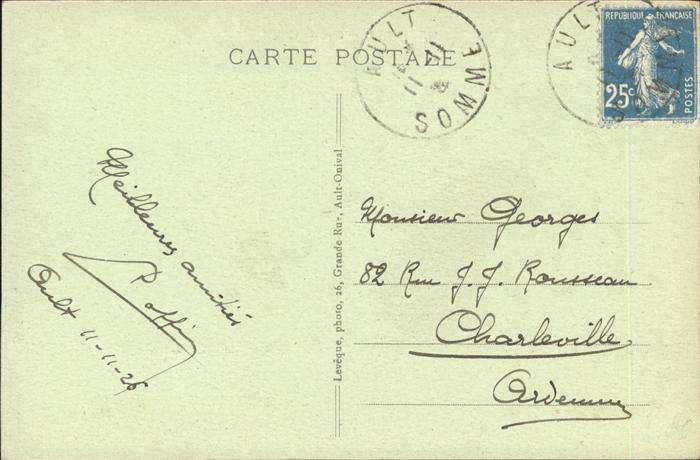 CARTE POSTALE
AULT
SOMME
11
11
AULT
SOMME
REPUBLIQUE FRANCAISE
25c
POSTES
Meilleures amitiés
Ault 11-11-26
Levêque, photo, 26, Grande Rue, Ault-Onival
Monsieur Georges
82 Rue J. J. Rousseau
Charleville
Ardennes